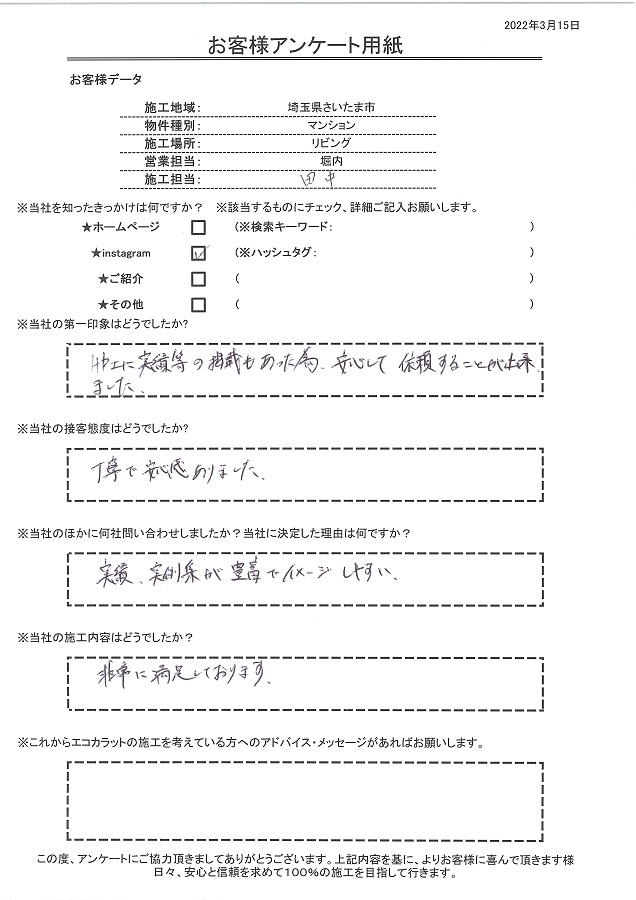 2022年3月15日
お客様アンケート用紙
お客様データ
施工地域： 埼玉県さいたま市
物件種別： マンション
施工場所： リビング
営業担当： 堀内
施工担当： 田中
※当社を知ったきっかけは何ですか？ ※該当するものにチェック、詳細ご記入お願いします。
★ホームページ □ （※検索キーワード： ）
★instagram ☑ （※ハッシュタグ：
★ご紹介 □ （ ）
★その他 □ （ ）
※当社の第一印象はどうでしたか?
に実績等の掲載もあった為、安心して依頼することが出来
ました。
※当社の接客態度はどうでしたか?
丁寧で安心感ありました。
※当社のほかに何社問い合わせしましたか？当社に決定した理由は何ですか？
実績、実例集が豊富でイメージしやすい。
※当社の施工内容はどうでしたか？
非常に満足しております。
※これからエコカラットの施工を考えている方へのアドバイス・メッセージがあればお願いします。
この度、アンケートにご協力頂きましてありがとうございます。上記内容を基に、よりお客様に喜んで頂きます様
日々、安心と信頼を求めて100％の施工を目指して行きます。